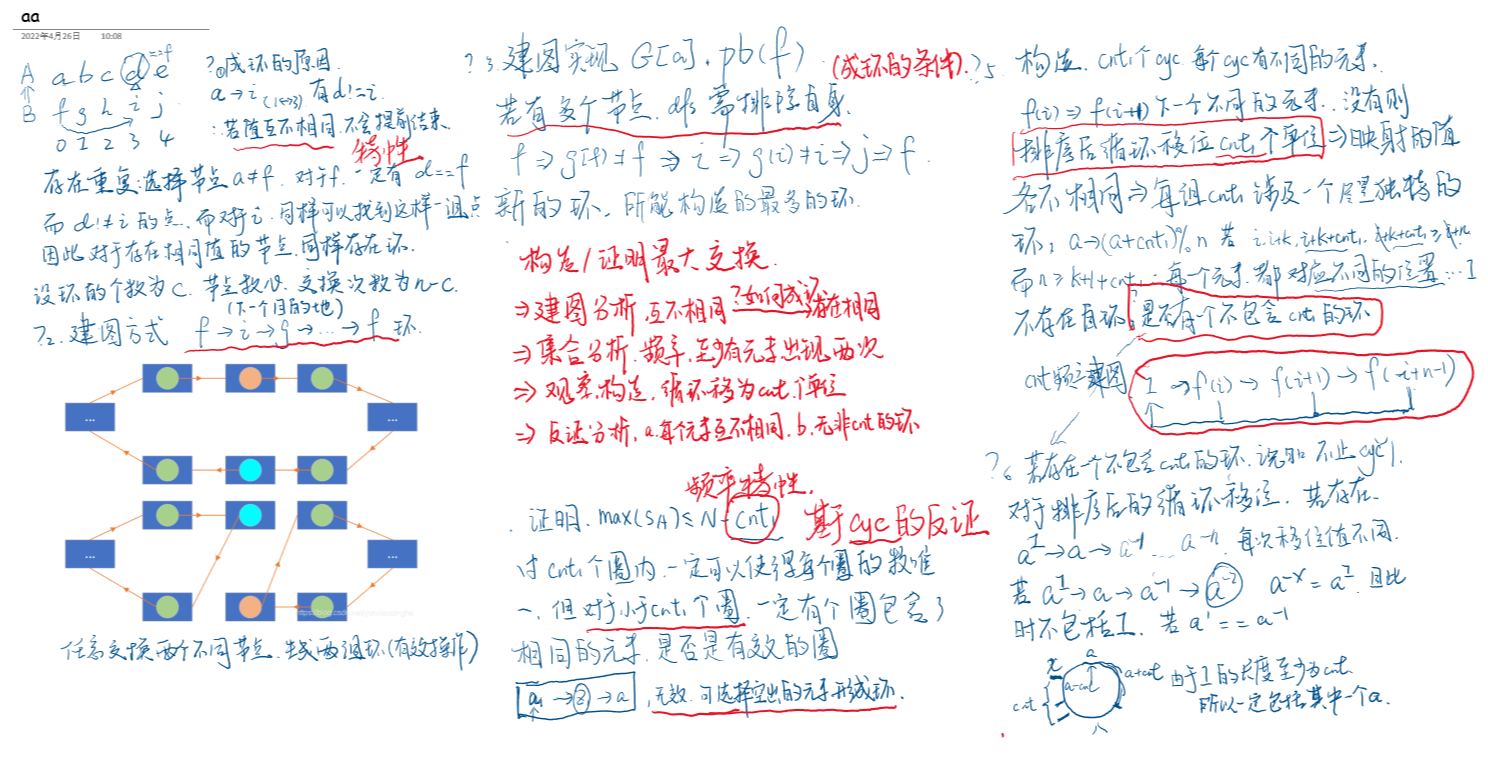 aa
2022年4月26日 10:08
A a b c d e ==f
B f g h i j
0 1 2 3 4
?。成环的原因
a→i (1↔3) 有d!=i.
:若值互不相同.不会提前结束.
特性
存在重复.选择节点 a≠f. 对于f.一定有 d==f
而 d!=i 的点.而对于i.同样可以找到这样一组点
因此对于存在相同值的节点.同样存在环.
设环的个数为C. 节点数N. 交换次数为n-c.
(下一个目的地)
?2. 建图方式 f→i→g→…→f 环.
...
...
...
...
任意交换两个不同节点.生成两组环(有效操作)
?3.建图实现 G[a].pb(f)
(成环的条件).
若有多个节点.dfs需排除自身.
f⇒g[f]≠f⇒i⇒g(i)≠i⇒j⇒f.
新的环.所能构造的最多的环.
构造/证明最大交换.
⇒建图分析.互不相同?如何成环 存在相同
⇒集合分析.频率.至少有元素出现两次
⇒观察.构造.循环移为cnt个单位
⇒反证分析.a.每个元素互不相同.b.无非cnt的环
频率特性.
.证明.max(SA)≤N-cnt1
基于cyc的反证
对cnt1个圈内.一定可以使得每个圈的数唯
一.但对于小于cnt1个圈.一定有个圈包含了
相同的元素.是否是有效的圈
a1→②→a ,无效.可选择空出的元素形成环.
?5 构造. cnt1个cyc 每个cyc有不同的元素.
f(i)⇒f(i+1)下一个不同的元素..没有则
排序后循环移位cnt1个单位⇒映射的值
各不相同⇒每组cnt1涉及一个尽量独特的
环; a→(a+cnt1)%n 若 i,i+k,i+k+cnt1.
而n≥k+1+cnt1 ∴每个元素都对应不同的位置…1
不存在自环;是否有个不包含cnt的环
cnt频率建图
1→f(i)→f(i+1)→f(i+n-1)
?6 若存在一个不包含cnt1的环.说明不止cyc1.
对于排序后的循环移位.若存在.
a¹→a→a⁻¹…a⁻ⁿ.每次移位值不同.
若a¹→a→a⁻¹→a⁻² a⁻ˣ=a¹.因此
时不包括1. 若a'==a⁻¹
a
x a-cnt a+cnt
cnt
由于1的长度至少为cnt.
所以一定包括其中一个a.